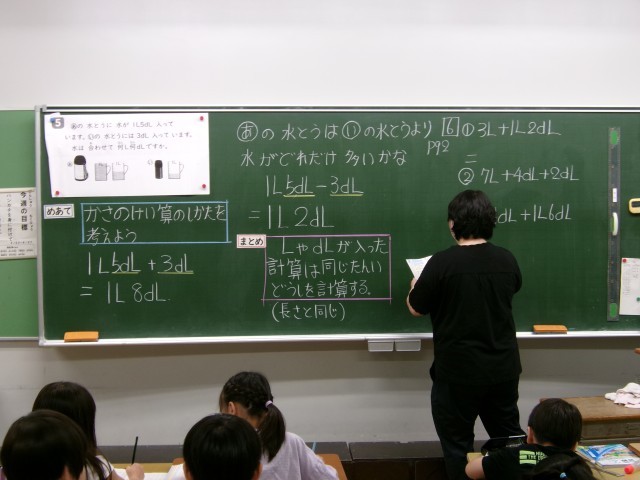 5 あの 水とうに 水が 1L5dL 入って
います。いの 水とうには 3dL 入って います。
水は 合わせて 何L何dLですか。
めあて
かさのけい算のしかたを
考えよう
1L5dL + 3dL
= 1L 8dL
あの 水とうは いの水とうより
水がどれだけ 多いかな
1L5dL - 3dL
= 1L 2dL
まとめ
LやdLが入った
計算は同じたんい
どうしを計算する。
(長さと同じ)
6 ① 3L+1L2dL
P92
=
② 7L+4dL+2dL
dL+1L6dL
今週の目標